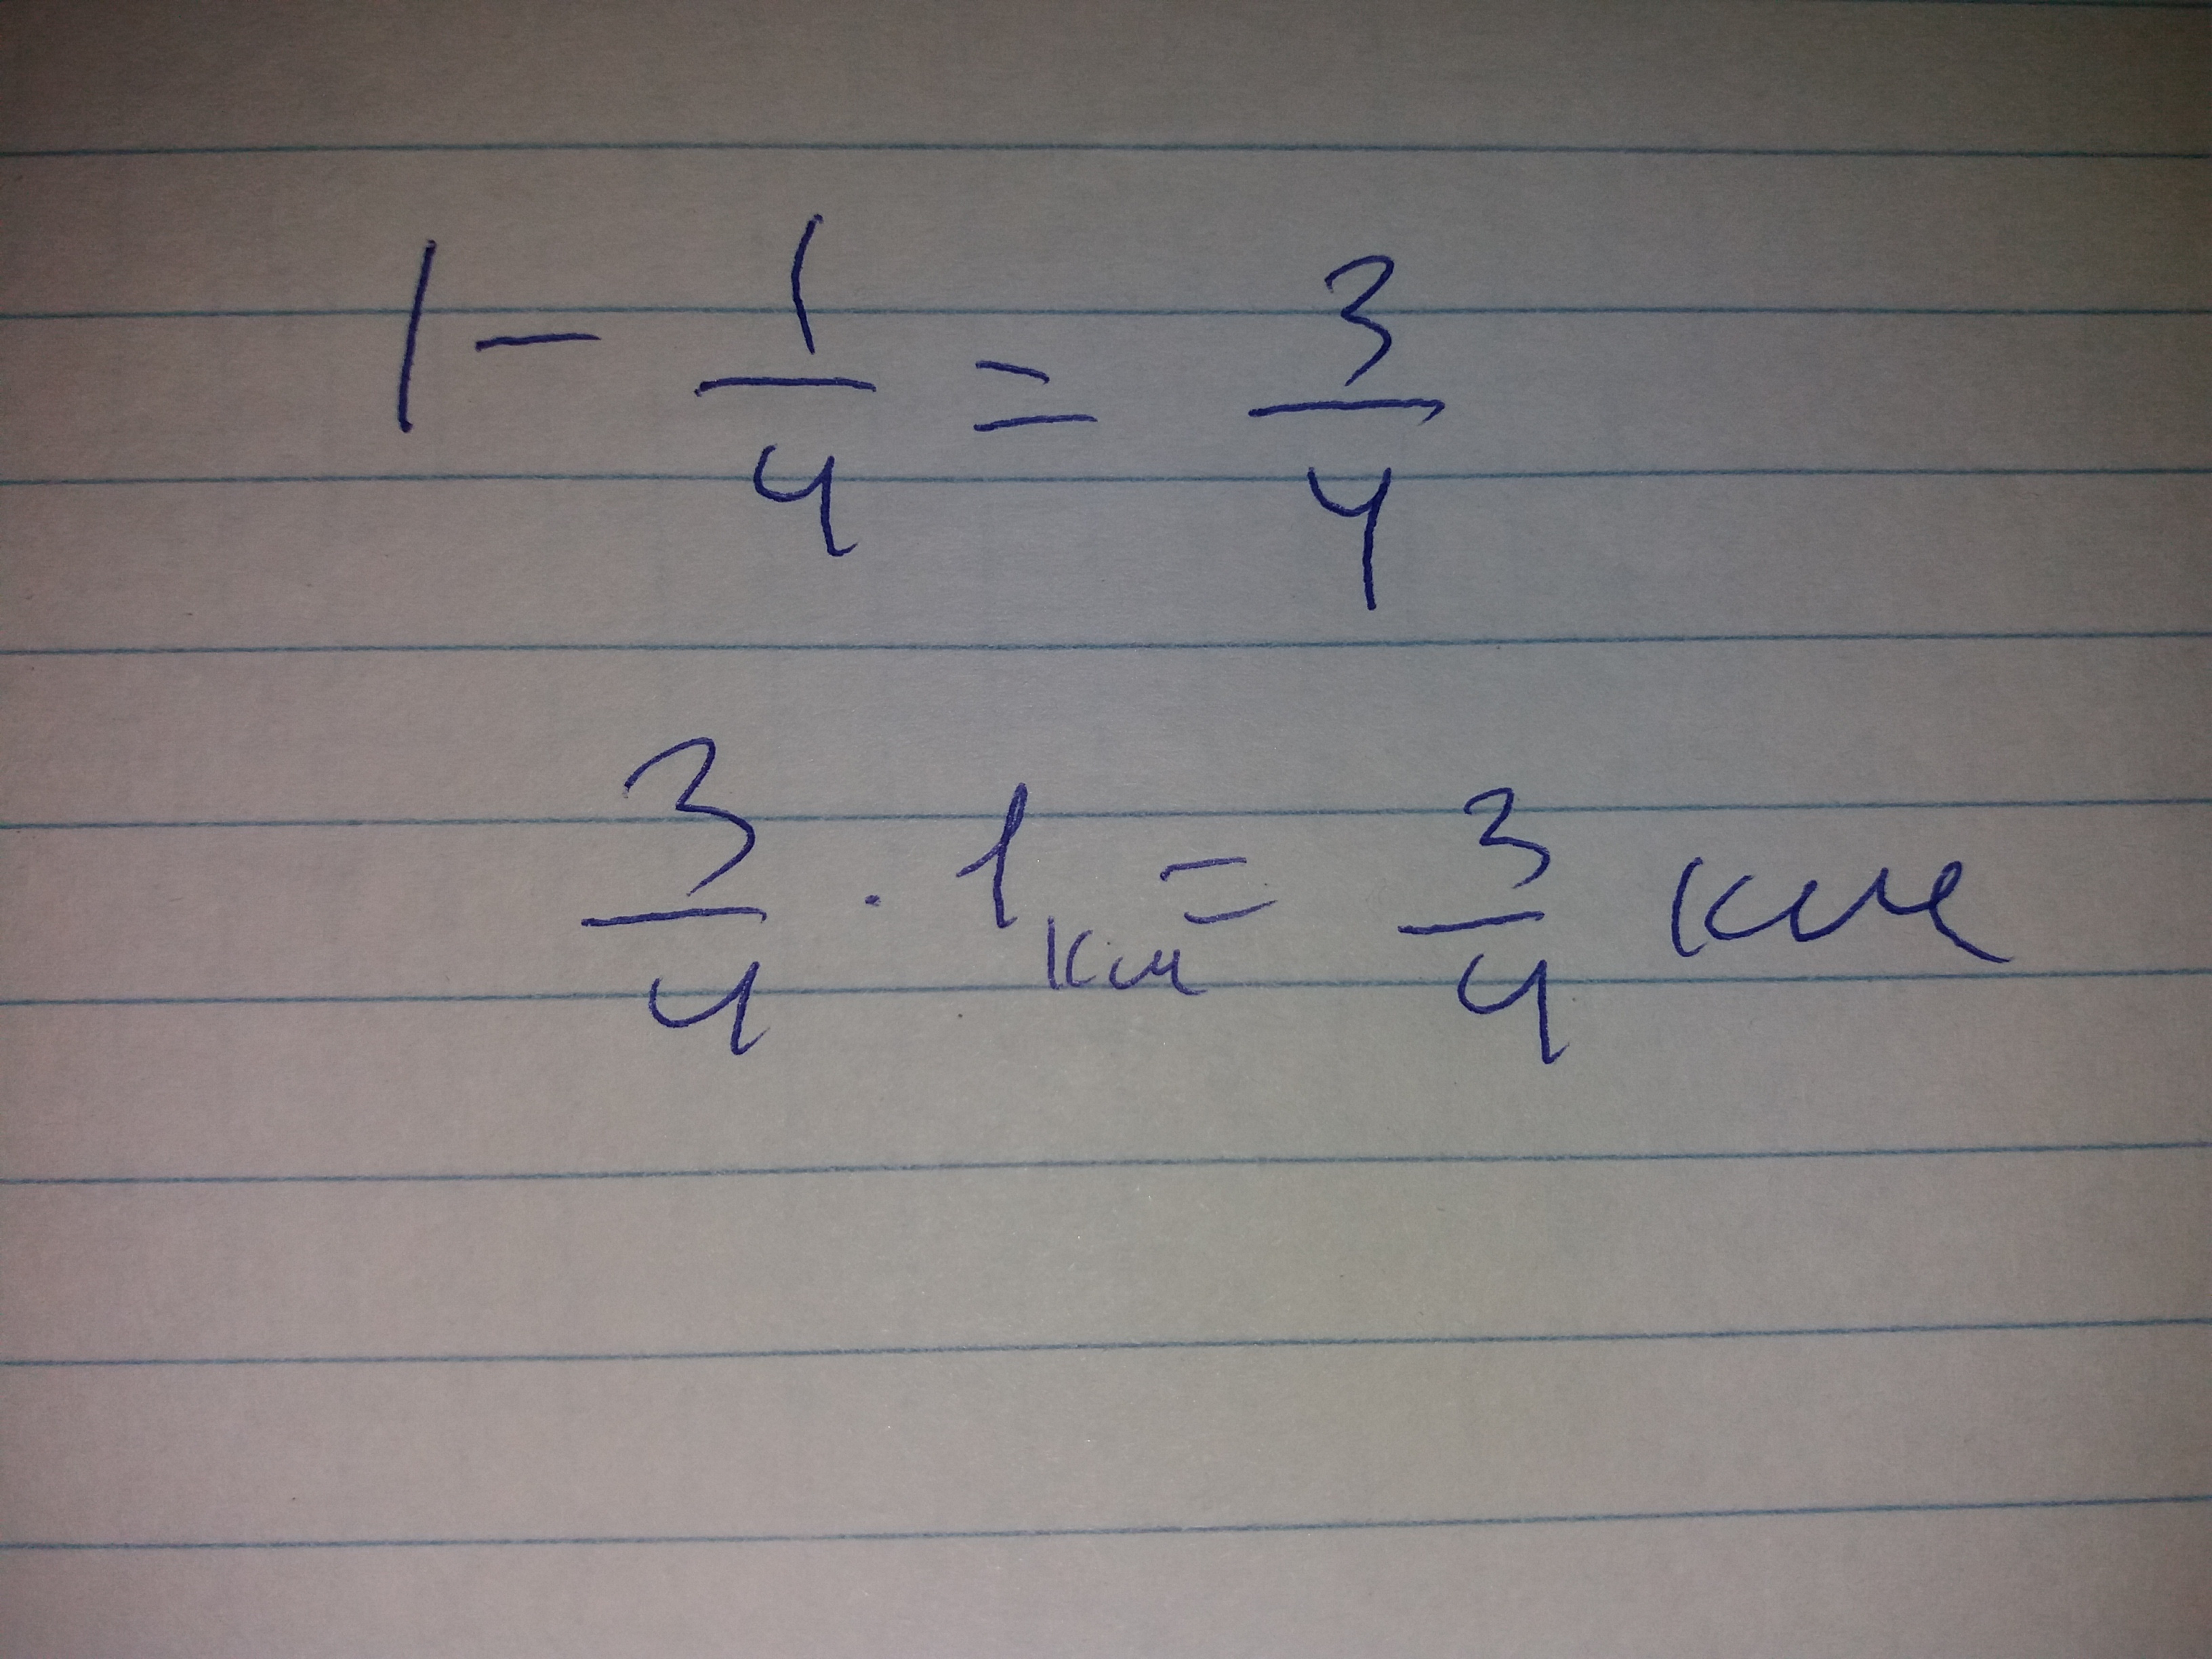 1 - 1/4 = 3/4
3/4 · 1 км = 3/4 км